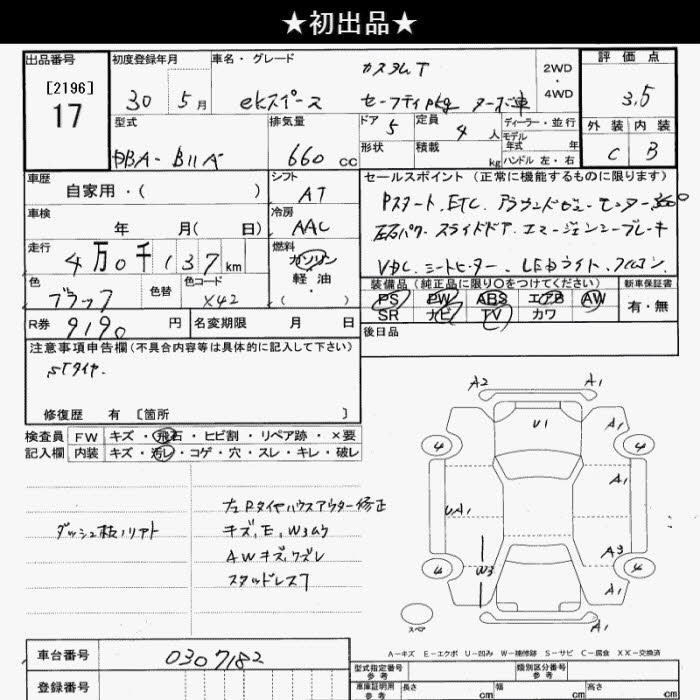 ★初出品★
出品番号
[2196]
17
初度登録年月
30 5月
車名・グレード
カスタムT
ekスペース セーフティpkg ターボ車
2WD
・
4WD
評価点
3.5
外装 内装
C B
型式
DBA-B11A
排気量
660 cc
ドア 5
形状
定員 4 人
積載 kg
ディーラー・並行
モデル
年式 年
ハンドル 左・右
車歴
自家用・( )
シフト
AT
車検
年 月( 日)
冷房
AAC
走行
4万0千137km
燃料
ガソリン
・
軽油
・
( )
色
ブラック
色替
色コード
X42
R券 9190 円
名変期限 月 日
セールスポイント(正常に機能するものに限ります)
Pスタート.ETC.アラウンドビューモニター360°
左右パワースライドドア.エマージェンシーブレーキ
VDC.シートヒーター.LEDライト.フルコン.
装備品(純正品に限り○をつけてください)
PS PW ABS エアB AW
SR ナビ TV カワ
新車保証書
有・無
後日品
注意事項申告欄(不具合内容等は具体的に記入して下さい)
STタイヤ.
修復歴 有 [箇所 ]
検査員
記入欄
FW キズ・飛石・ヒビ割・リペア跡・×要
内装 キズ・汚レ・コゲ・穴・スレ・キレ・破レ
左Rタイヤハウスアウター修正
キズ,E,W3ムラ
AWキズ,ワズレ
スタッドレス7
A2 A1
U1 A1
4 4
A1
UA1
A3
4 W3 4
A1
A1
スペア
A-キズ E-エクボ U-凹み W-補修跡 S-サビ C-腐食 XX-交換済
車台番号 0307182
登録番号
型式指定番号
参考
類別区分番号
参考
車庫証明用
参考
長さ cm
幅 cm
高さ cm